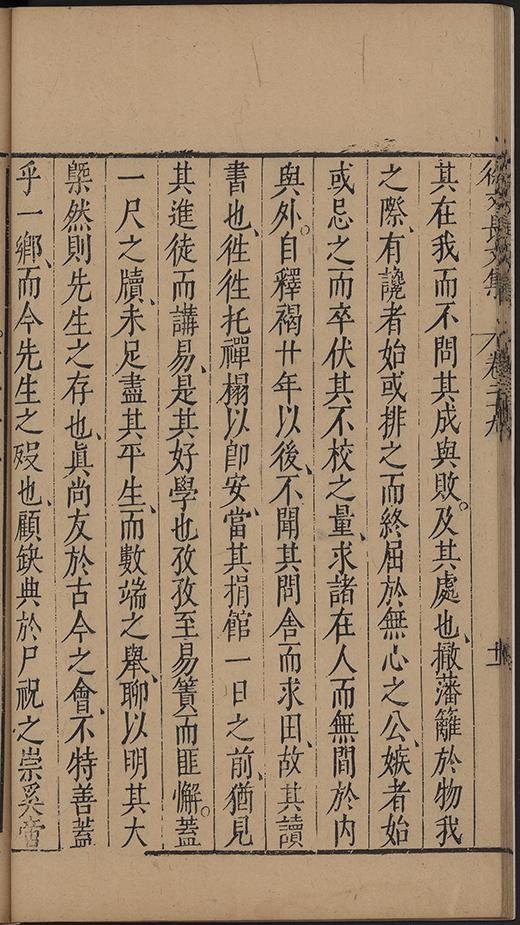 徐文長文集 卷二十九 十一
其在我而不問其成與敗。及其處也、撤藩籬於物我
之際、有讒者始或排之而終屈於無心之公、嫉者始
或忌之而卒伏其不校之量、求諸在人而無間於内
與外。自釋褐廿年以後、不聞其問舎而求田、故其讀
書也、徃徃托禪榻以卽安、當其捐館一日之前、猶見
其進徒而講易、是其好學也孜孜至易簀而匪懈。蓋
一尺之牘、未足盡其平生、而數端之舉、聊以明其大
槩然則先生之存也、眞尚友於古今之會、不特善蓋
乎一鄉、而今先生之殁也、顧缺典於尸祝之崇奚啻